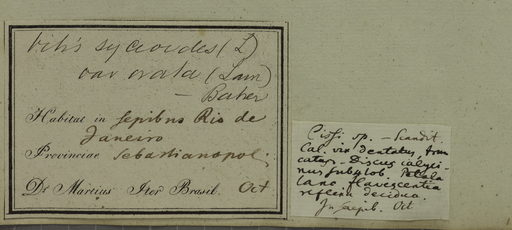 Vitis sycioides (L)
var ovata (Lam)
— Baker
Habitat in sepibus Rio de
Janeiro
Provinciae Sebastianopol.
Dr Martius Iter Brasil. Oct
Cissi sp. — Scandit.
Cal. vix dentatus, trun
catus. Discus calyci-
nus sub4lob. Petala
lano flavescentia
reflexa decidua.
In saepib. Oct